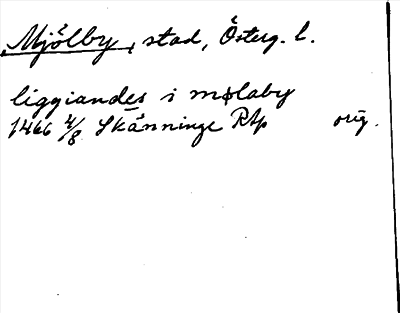 Mjölby, stad, Österg. l.
liggiandes i mølaby
1466 4/8 Skänninge RAp orig.